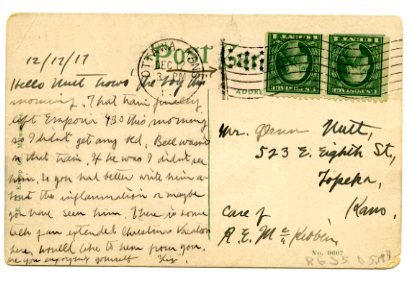 12/17/17
OTTAWA, KANS.
DEC
3 PM
Post
ADDRE
Hello Nutt hows the boy this
morning. That train finally
left Emporia 430 this morning
so I didn't get any
on that train. If he was I didn't see
him, so you had better write him a-
bout the information or maybe
you have seen him. There is some
talk of an extended Christmas vacation
here, would like to hear from you.
are you enjoying yourself
Mr. Glenn Nutt,
523 E. Eighth St,
Topeka,
Kans.
Care of
R. E. McKibben
No. 0667